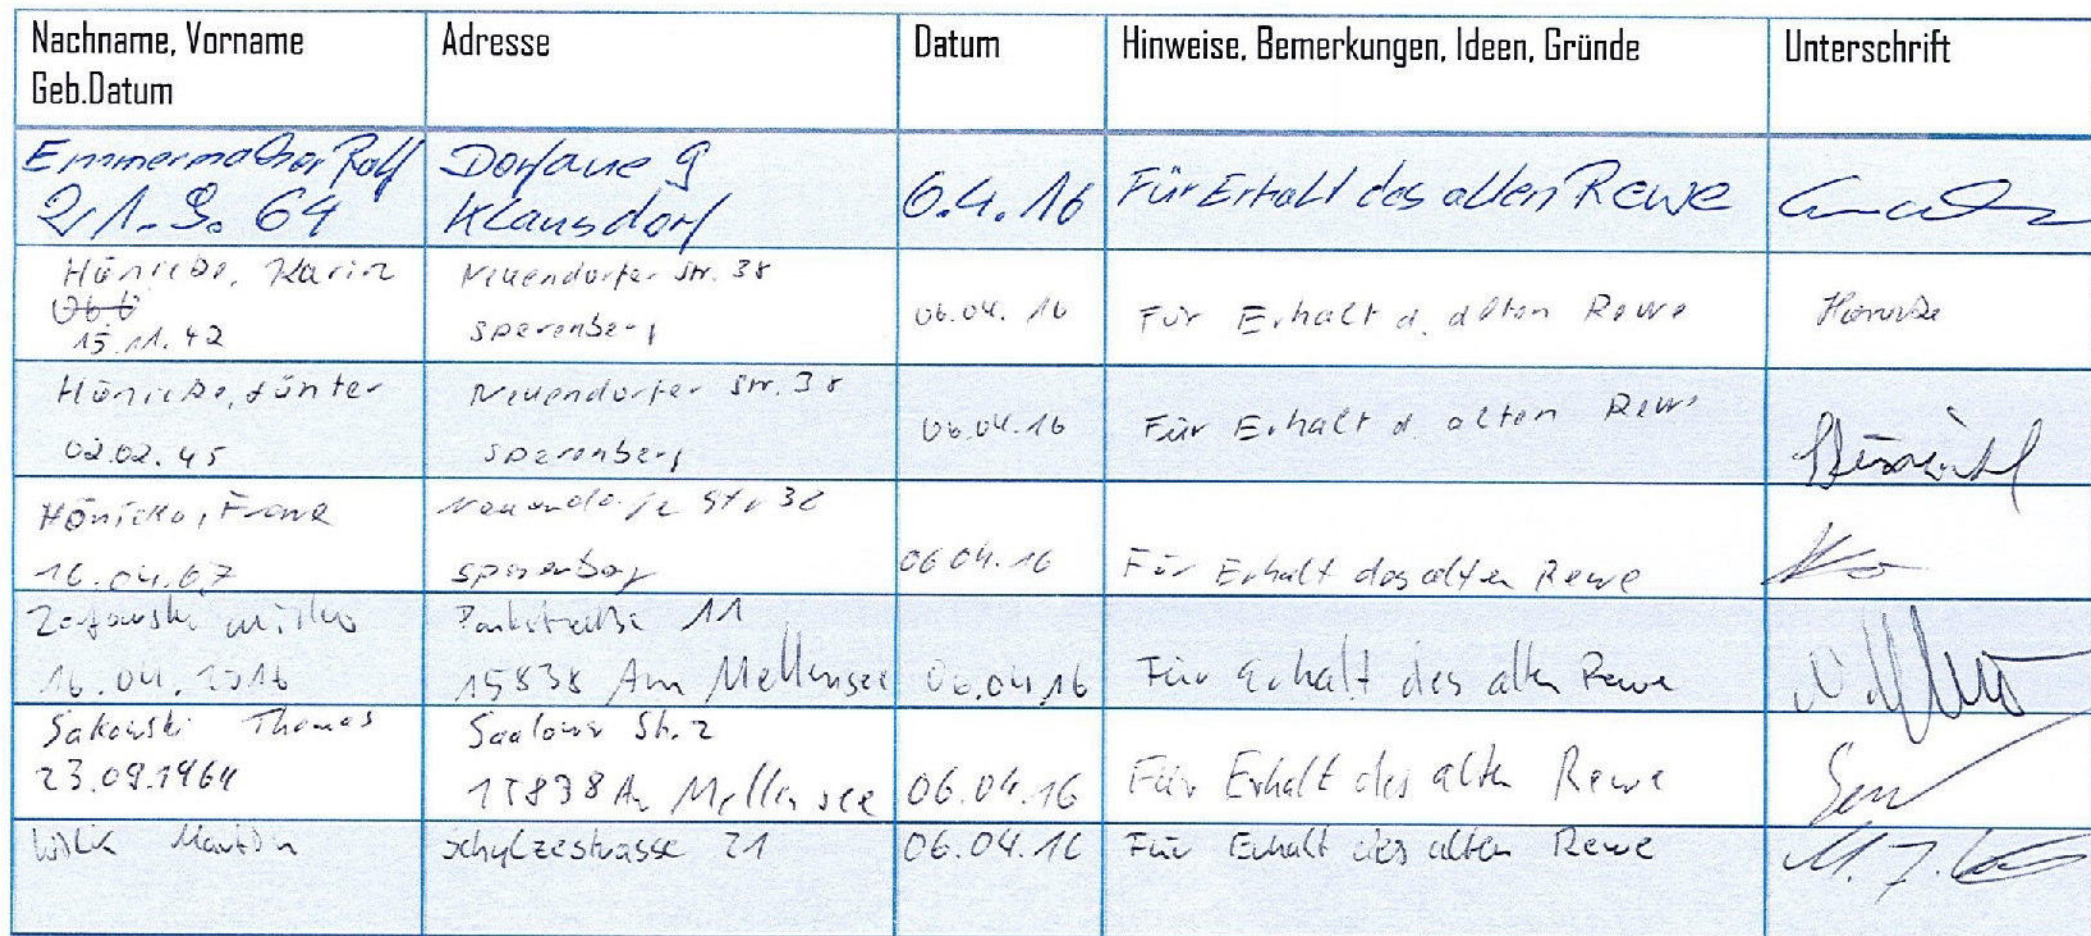 Nachname, Vorname
Geb.Datum
Adresse
Datum
Hinweise, Bemerkungen, Ideen, Gründe
Unterschrift
Emmermacher Ralf
21.9.64
Dorfaue 9
Klausdorf
6.4.16
Für Erhalt des alten Rewe
Hönicke, Karin
15.11.42
Neuendorfer Str. 38
Sperenberg
06.04.16
Für Erhalt d. alten Rewe
Hönicke
Hönicke, Günter
02.02.45
Neuendorfer Str. 38
Sperenberg
06.04.16
Für Erhalt d. alten Rewe
Hönicke, Frank
16.04.67
Neuendorfer Str 38
Sperenberg
06.04.16
Für Erhalt des alten Rewe
16.04.2016
Parkstraße 11
15838 Am Mellensee
06.04.16
Für Erhalt des alten Rewe
Sakowski Thomas
23.09.1964
Saalower Str. 2
15838 Am Mellensee
06.04.16
Für Erhalt des alten Rewe
Wilk Martin
Schulzestrasse 21
06.04.16
Für Erhalt des alten Rewe